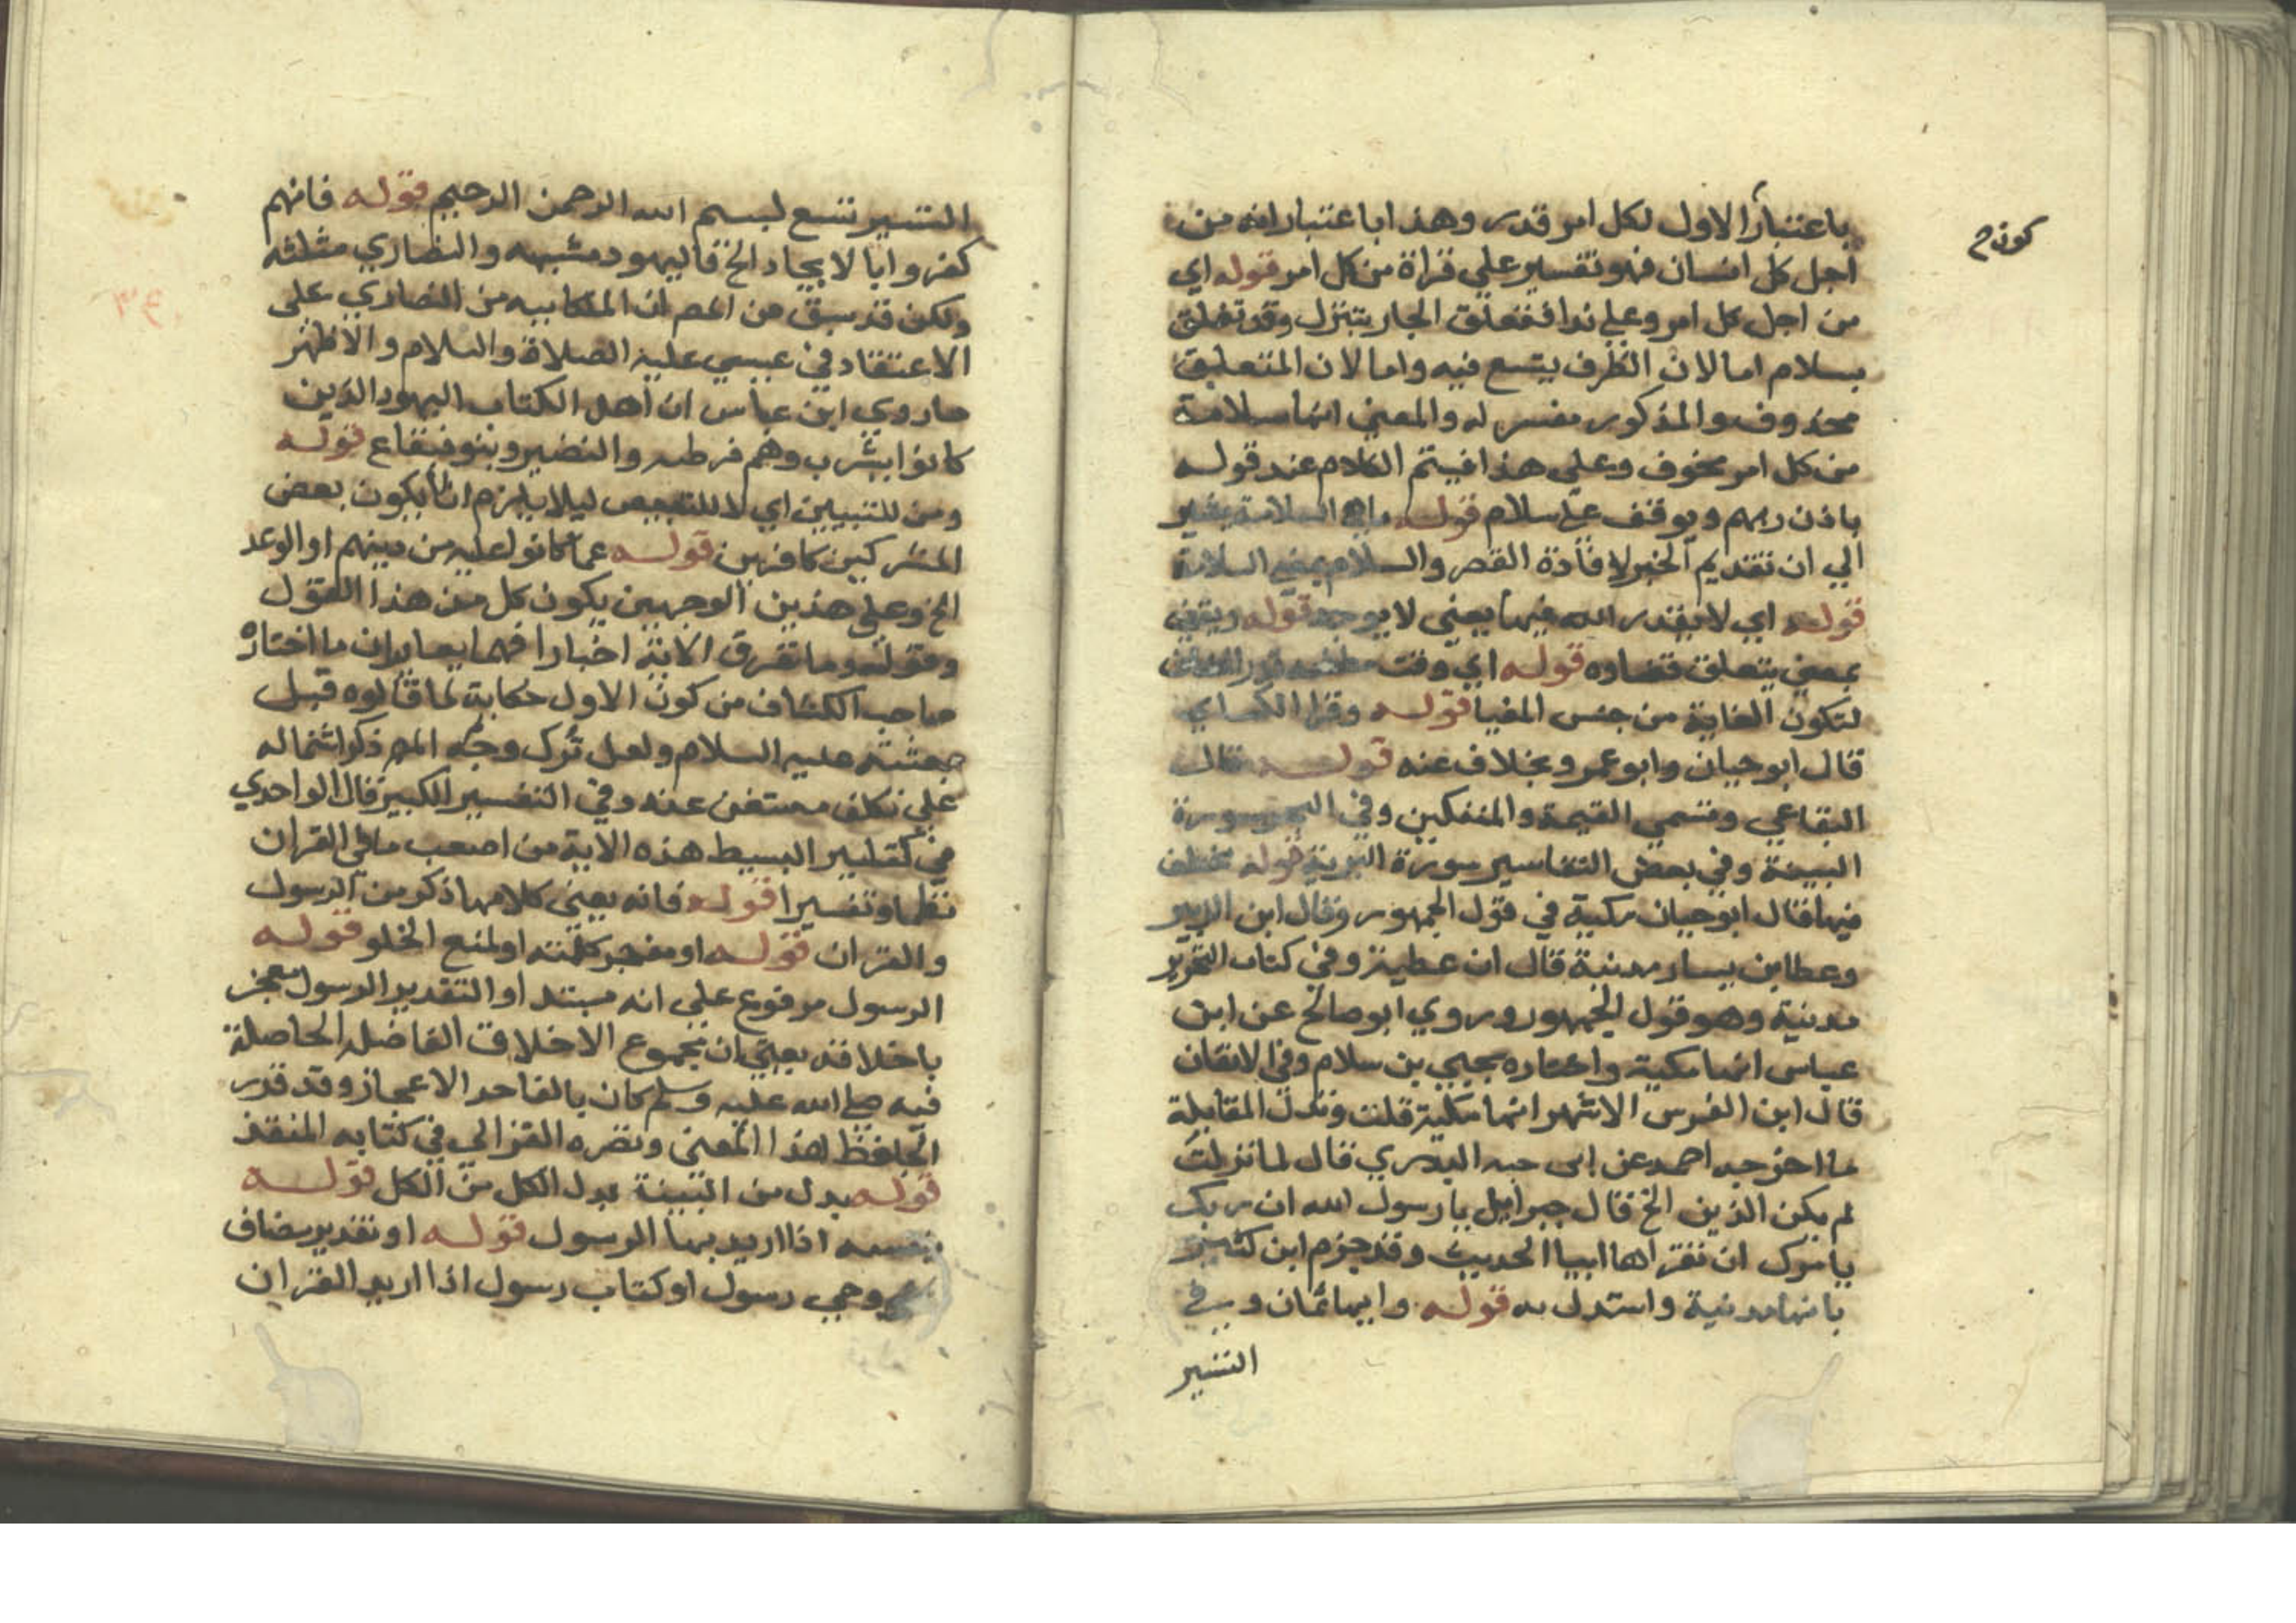 كونه ح
باعتبار الاول لكل امر قدر وهذا باعتبار انه من
اجل كل انسان فهو تفسير علي قراة من كل امر قوله اي
من اجل كل امر وعلي فتعلق الجار بتنزل وقد تعلق
بسلام اما لان الظرف يتسع فيه واما لان المتعلق
محذوف والمذكور مفسر له والمعني انها سلامة
من كل امر مخوف وعلي هذا فيتم الكلام عند قوله
باذن ربهم ويوقف علي سلام قوله ما هي الا سلامة يشير
الي ان تقديم الخبر لافادة القصر والسلام بمعني السلامة
قوله اي لا يقدر الله فيها يعني لا يوجد قوله
بمعني يتعلق قضاوه قوله اي وقت
لتكون الغاية من جنس المغيا قوله وقرا الكساي
قال ابو حيان وابو عمرو بخلاف عنه قوله قال
البقاعي وتسمي القيمة والمنفكين وفي سورة
البينة وفي بعض التفاسير سورة البرية قوله مختلف
فيها قال ابو حيان مكية في قول الجمهور وقال ابن الزبير
وعطا بن يسار مدنية قال ابن عطية وفي كتاب التحرير
مدنية وهو قول الجمهور وروي ابو صالح عن ابن
عباس انها مكية واختاره يحيي بن سلام وفي الاتقان
قال ابن الفرس الاشهر انها مكية قلت وتدل لمقابلة
ما اخرجه احمد عن ابي حبه البدري قال لما نزلت
لم يكن الذين الخ قال جبرايل يا رسول الله ان ربك
يامرك ان تقراها ابيا الحديث وقد جزم ابن كثير
بانها مدنية واستدل به قوله وايها ثمان وفي
التيسير
التيسير تسع لبسم الله الرحمن الرحيم قوله فانهم
كفروا بالايجاد الخ فاليهود مشبهه والنصاري مثلثه
ولكن قد سبق من المص ان الملكانيه من النصاري علي
الاعتقاد في عيسي عليه الصلاة والسلام والاظهر
ما روي ابن عباس ان اهل الكتاب اليهود الذين
كانوا بيثرب وهم قرظه والنضير وبنو قينقاع قوله
ومن للتبيين اي لا للتبعيض ليلا يلزم ان لا يكون بعض
المشركين كافرين قوله عما كانوا عليه من دينهم او الوعد
الخ وعلي هذين الوجهين يكون كل من هذا القول
وقوله وما تفرق الاية اخبارا فهما يعايران ما اختاره
صاحب الكشاف من كون الاول حكاية لما قالوه قبل
بعثته عليه السلام ولعل ترك وجه المص ذكر اشتماله
علي تكلف مستغن عنه وفي التفسير الكبير قال الواحدي
في كتاب البسيط هذه الاية من اصعب ما في القران
نظما وتفسيرا قوله فانه يعني كلا مما ذكر من الرسول
والقران قوله او معجز كلمته او لمنع الخلو قوله
الرسول مرفوع علي انه مبتدا والتقدير الرسول معجز
باخلاقه يعني ان مجموع الاخلاق الفاضله الحاصلة
فيه صلي الله عليه وسلم كان بالغا حد الاعجاز وقد قدر
الحافظ هذا المعني ونصره الغزالي في كتابه المنقذ
قوله بدل من البينة بدل الكل من الكل قوله
بنفسه اذا اريد بها الرسول قوله او تقدير مضاف
وحي رسول او كتاب رسول اذا اريد القران
٣٤